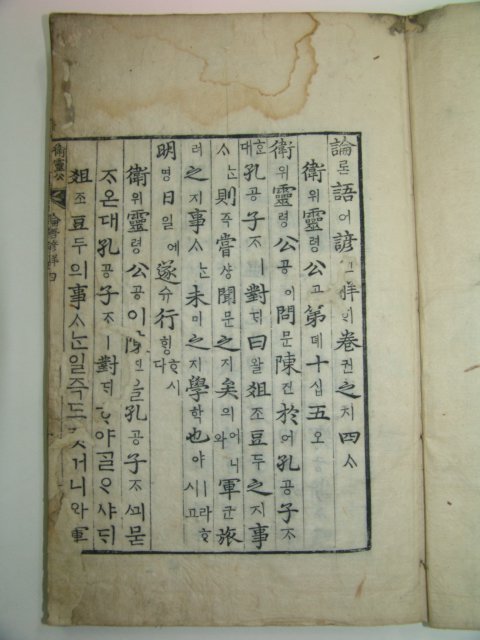 論론語어諺언解ᄒᆡ卷권之지四ᄉᆞ
衛위靈령公공第뎨十십五오
衛위靈령公공이問문陳진於어孔공子ᄌᆞ
ᄒᆞᆫ대孔공子ᄌᆞㅣ對ᄃᆡ曰왈俎조豆두之지事
ᄉᆞᄂᆞᆫ則즉嘗샹聞문之지矣의어니와軍군旅
려之지事ᄉᆞᄂᆞᆫ未미之지學학也야ㅣ라ᄒᆞ시고
明명日일에遂슈行ᄒᆡᆼᄒᆞ시다
衛위靈령公공이陳진을孔공子ᄌᆞᄭᅴ묻
ᄌᆞ온대孔공子ᄌᆞㅣ對ᄃᆡᄒᆞ야ᄀᆞᆯᄋᆞ샤ᄃᆡ
俎조豆두의事ᄉᆞᄂᆞᆫ일즉드럿거니와軍
衛靈公 論語諺解四